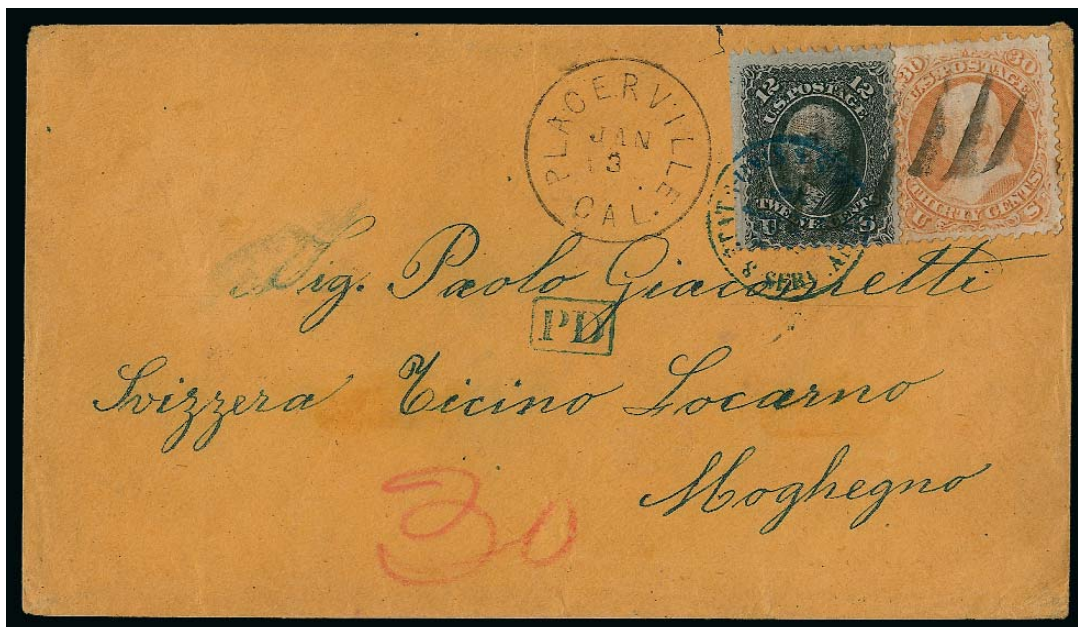 PLACERVILLE
JAN
13
CAL.
12 12
U.S. POSTAGE
TWELVE CENTS
U S
30 30
U.S. POSTAGE
THIRTY CENTS
U S
Sig. Paolo Giacometti
PD
Svizzera Ticino Locarno
Moghegno
30